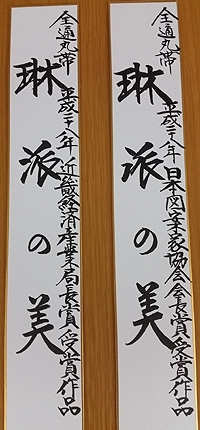 全通丸帯
琳派の美
平成二八年日本図案家協会会長賞受賞作品
全通丸帯
琳派の美
平成二八年近畿経済産業局長賞受賞作品